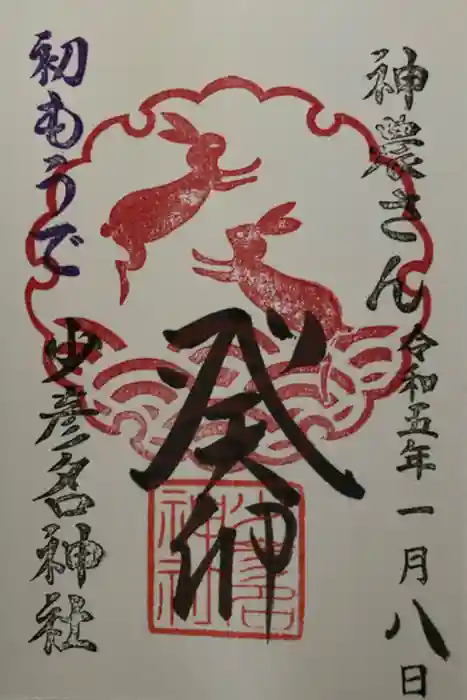 神農さん
令和五年一月八日
癸卯
初もうで
少彦名神社